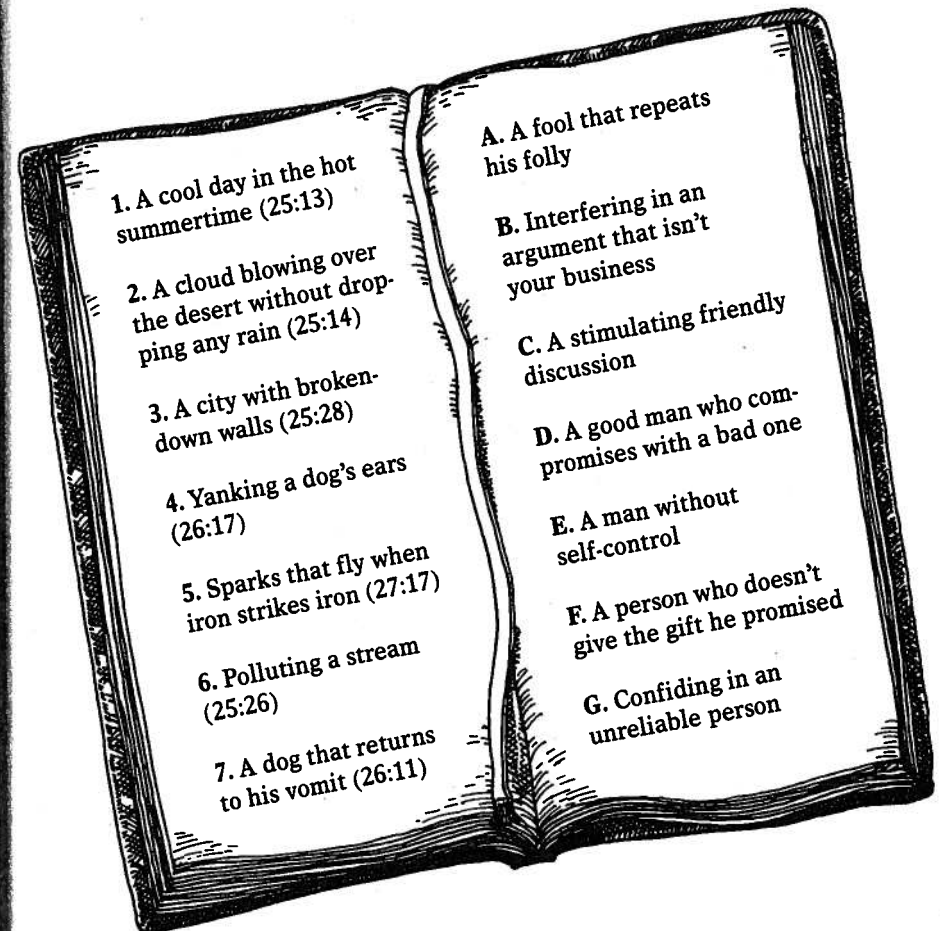 1. A cool day in the hot
summertime (25:13)
2. A cloud blowing over
the desert without drop-
ping any rain (25:14)
3. A city with broken-
down walls (25:28)
4. Yanking a dog's ears
(26:17)
5. Sparks that fly when
iron strikes iron (27:17)
6. Polluting a stream
(25:26)
7. A dog that returns
to his vomit (26:11)
A. A fool that repeats
his folly
B. Interfering in an
argument that isn't
your business
C. A stimulating friendly
discussion
D. A good man who com-
promises with a bad one
E. A man without
self-control
F. A person who doesn't
give the gift he promised
G. Confiding in an
unreliable person